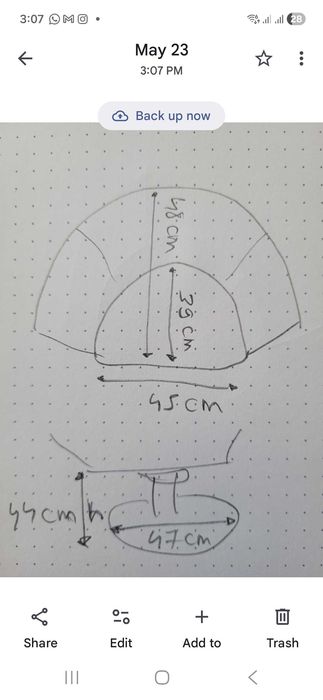 3:07
28
May 23
3:07 PM
Back up now
48 cm
39 cm
45 cm
44 cm h
47 cm
Share
Edit
Add to
Trash